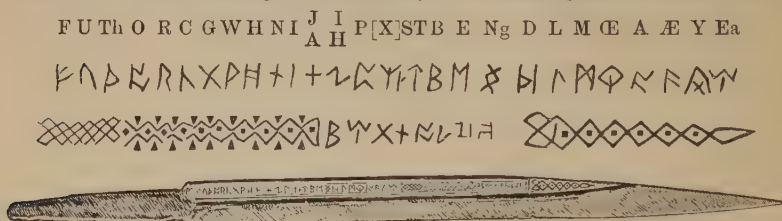 F U Th O R C G W H N I J I P [X] S T B E Ng D L M Œ A Æ Y Ea
A H
ᚠᚢᚦᚩᚱᚳᚷᚹᚻᚾᛁᛄᛇᛈᛉᛋᛏᛒᛖᛝᛞᛚᛗᛟᚪᚫᚣᛠ
ᛒᛠᚷᚾᚩᚦ